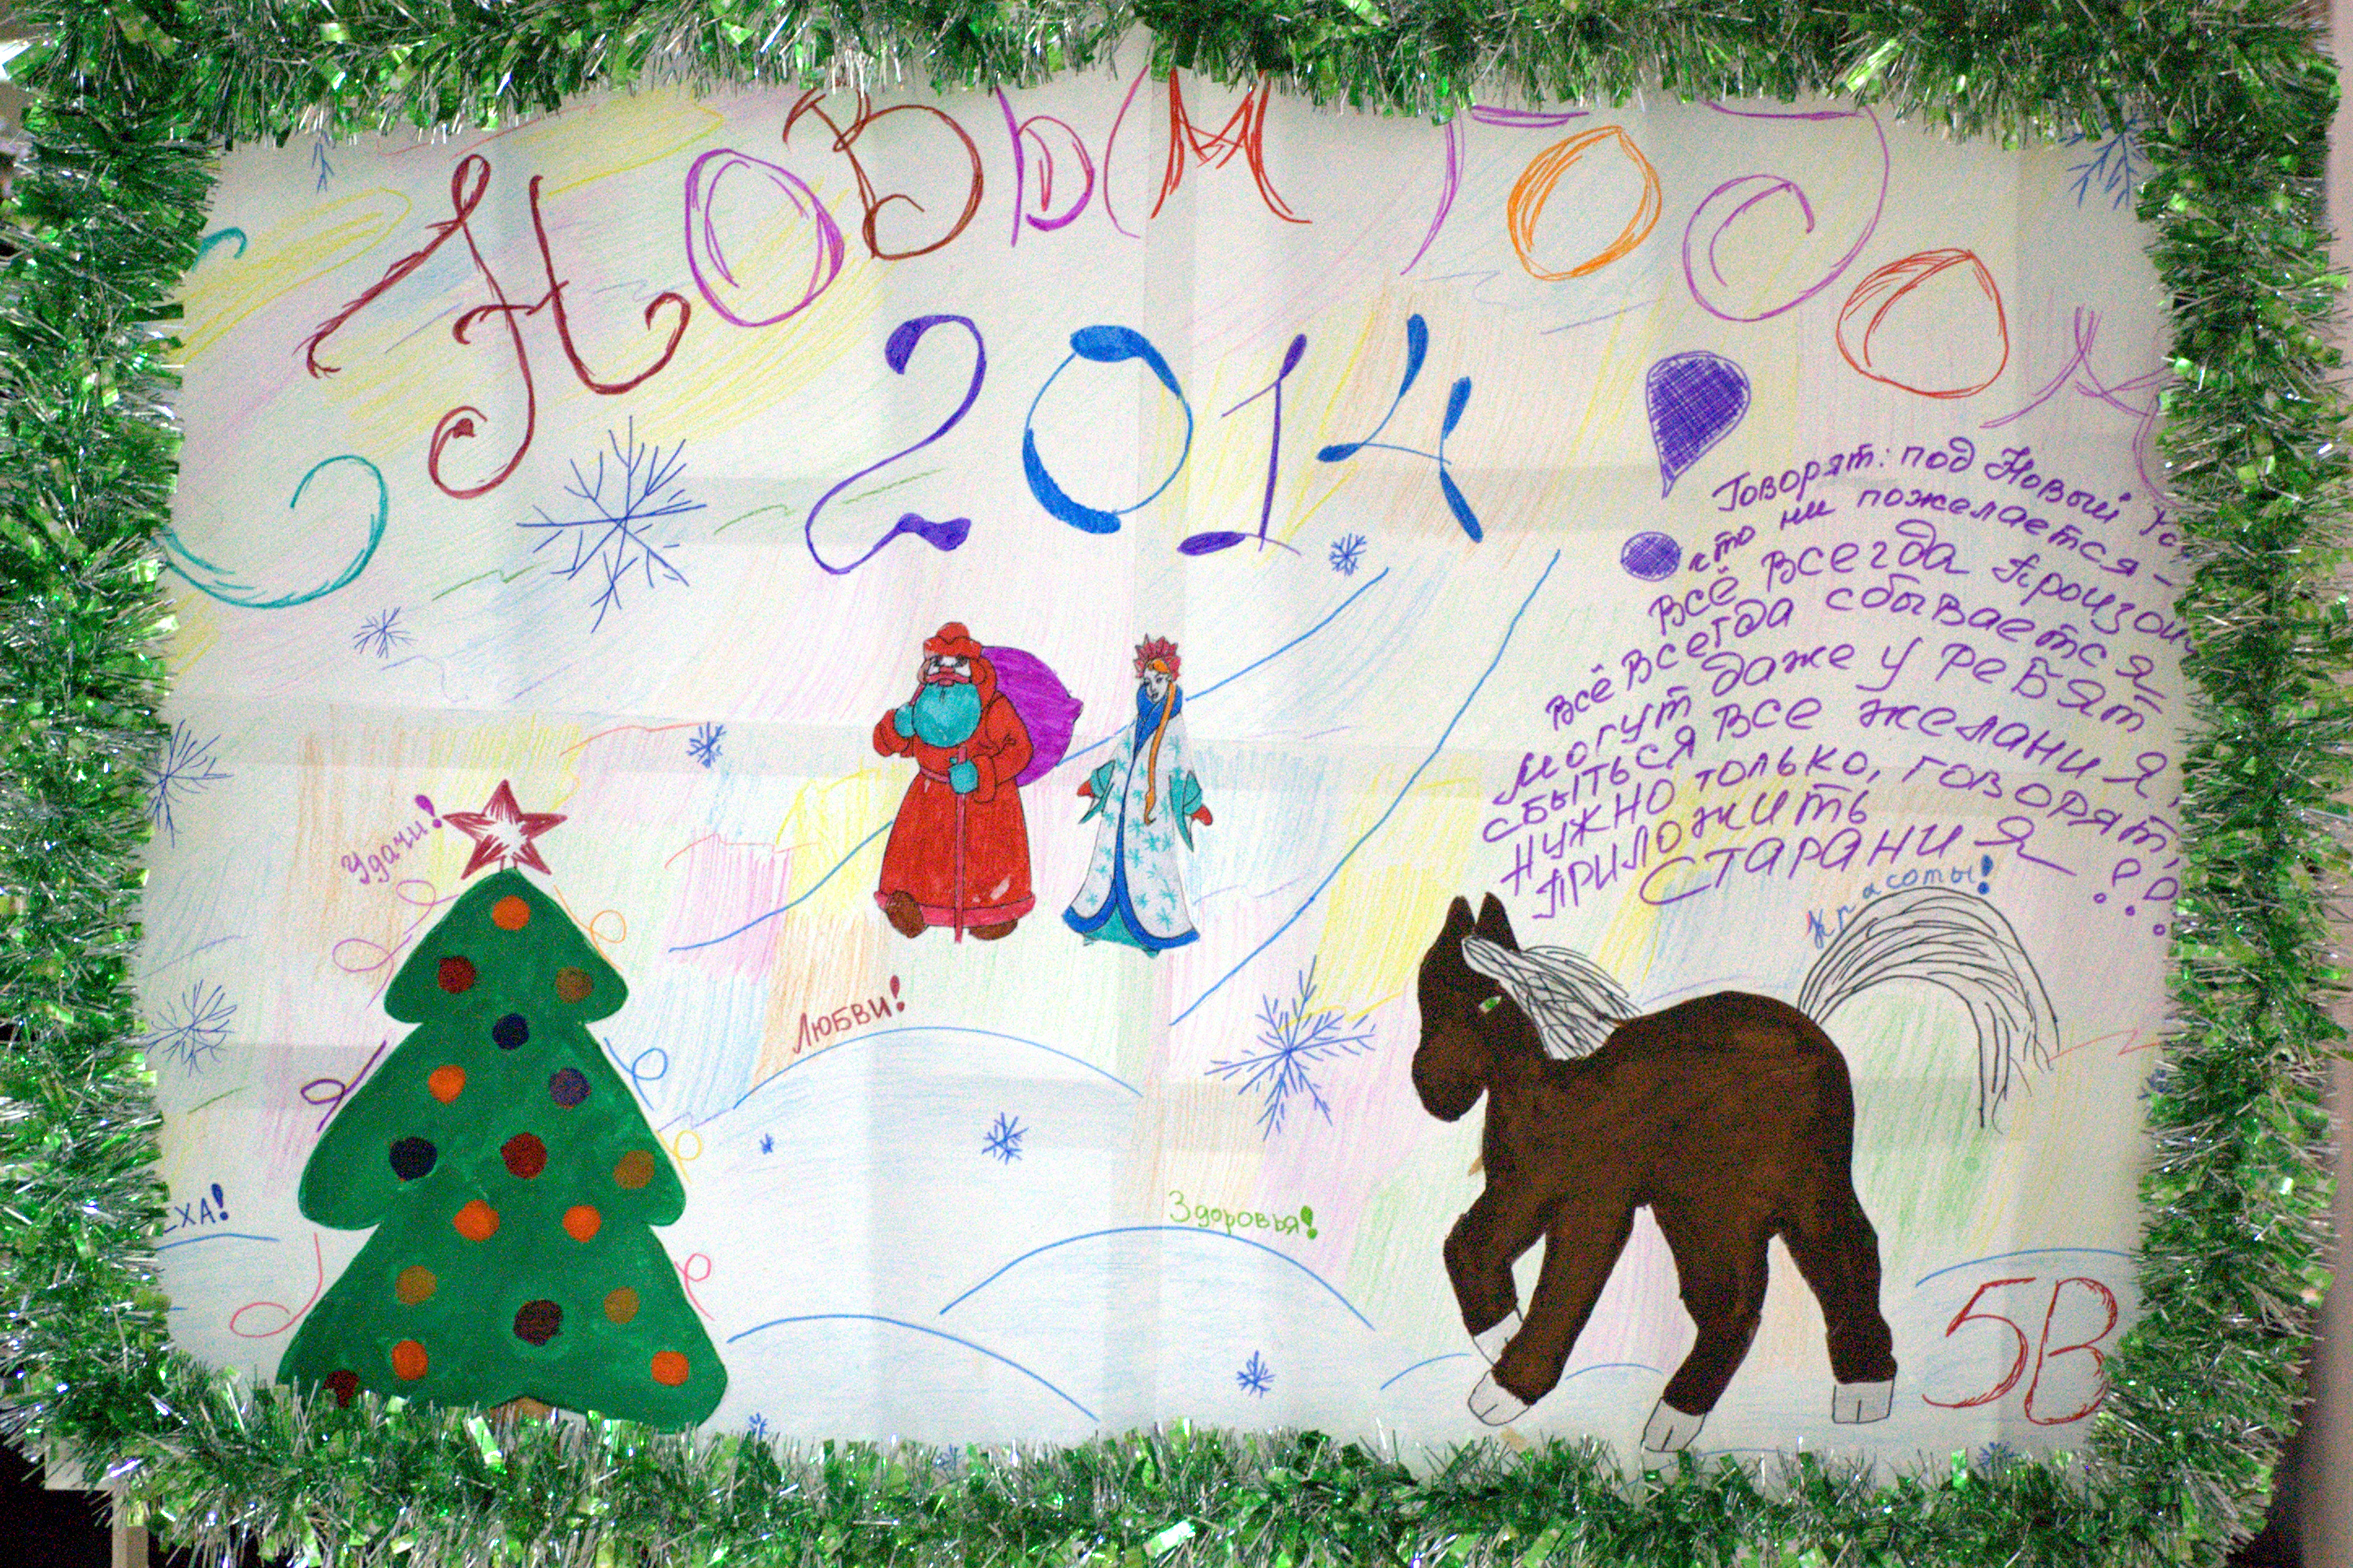 С Новым годом
2014!
Говорят: под Новый год
что ни пожелается-
Всё всегда произой
всё всегда сбывается
могут даже у ребят
сбыться все желания,
нужно только, говорят,
приложить
старания!!!
Удачи!
Красоты!
Любви!
ЕХА!
Здоровья!
5В